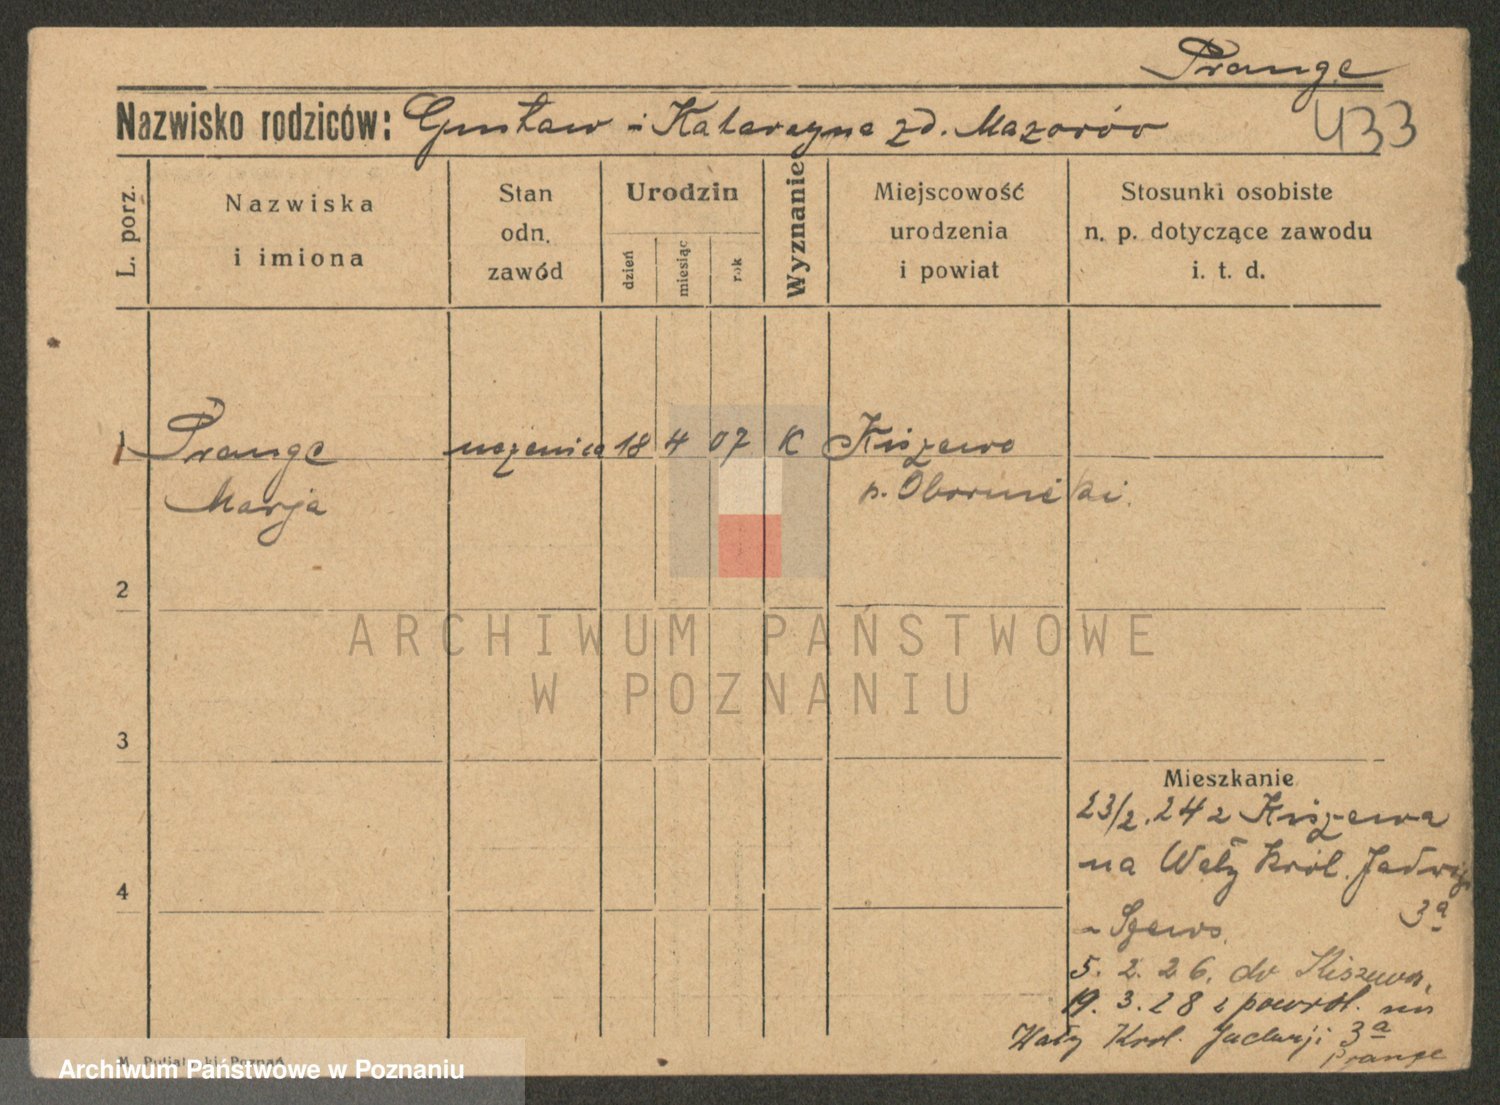 Prange
Nazwisko rodziców: Gustaw i Katarzyna zd. Mazorów
433
L. porz.
Nazwiska
i imiona
Stan
odn.
zawód
Urodzin
dzień
miesiąc
rok
Wyznanie
Miejscowość
urodzenia
i powiat
Stosunki osobiste
n. p. dotyczące zawodu
i. t. d.
1 Prange uczenica 18 4 07 K Kiszewo
Marja p. Obornicki.
2
ARCHIWUM PAŃSTWOWE
W POZNANIU
3
Mieszkanie
23/2.24 z Kiszewa
na Wały Król. Jadwigi
3a
5. 2. 26. do Kiszewa,
19. 3. 28 z powrót. na
Wały Krol. Jadwigi 3a
Prange
4
Poznań
Archiwum Państwowe w Poznaniu